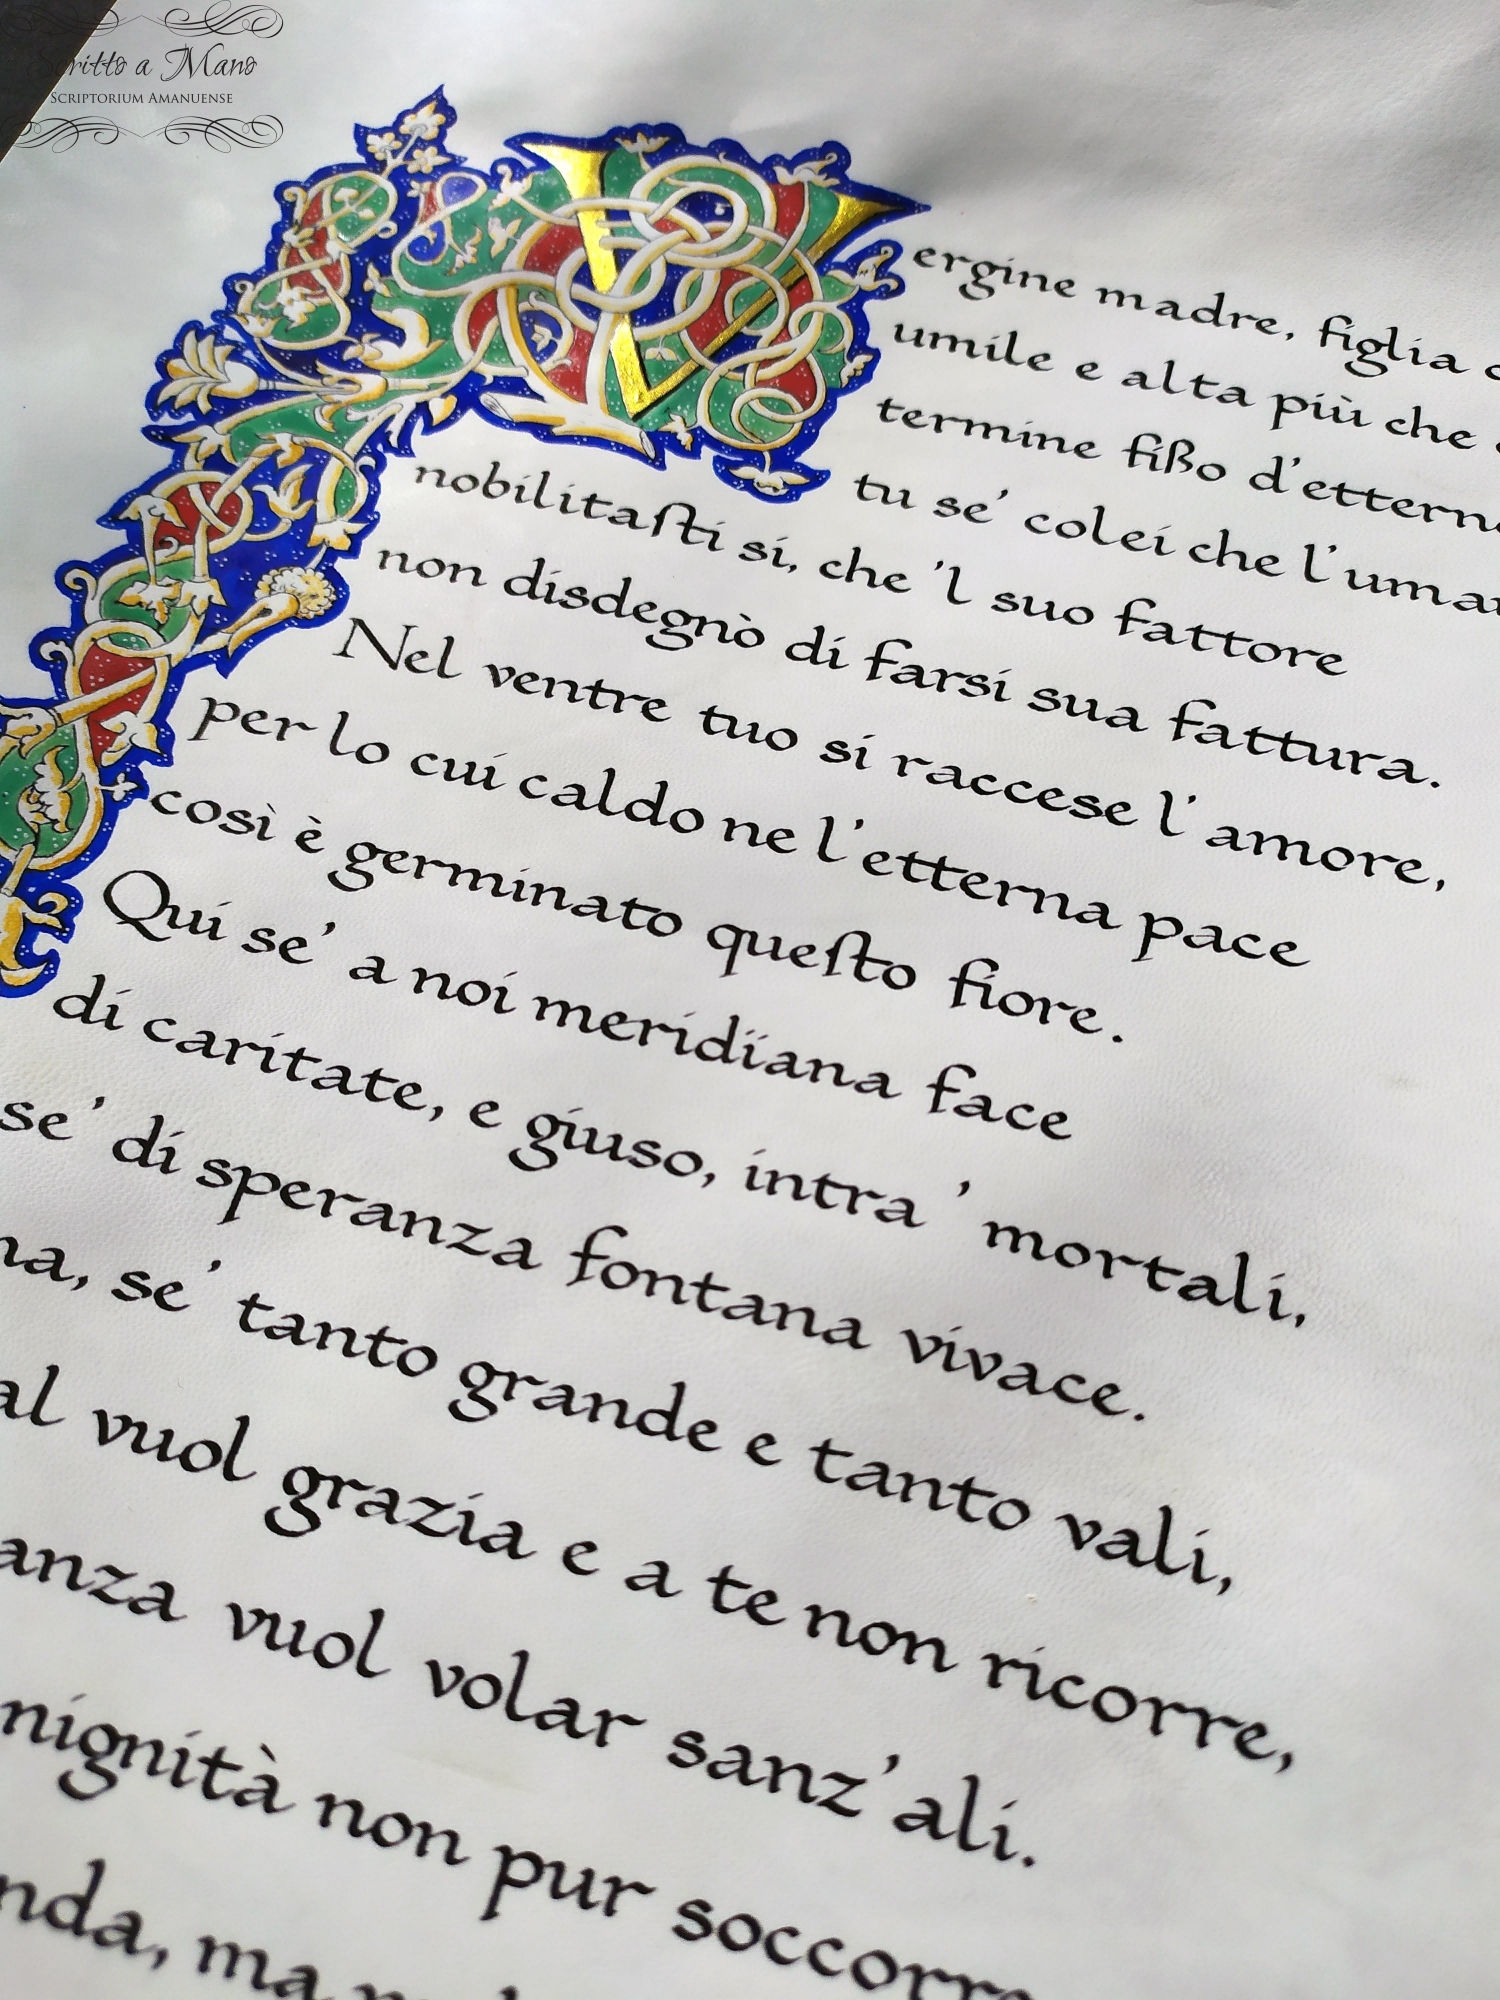 Scritto a Mano
SCRIPTORIUM AMANUENSE
Vergine madre, figlia
umile e alta più che
termine fißo d'etterno
tu se' colei che l'uman
nobilitaſti sí, che 'l suo fattore
non disdegnò di farsi sua fattura.
Nel ventre tuo si raccese l'amore,
per lo cui caldo ne l'etterna pace
così è germinato queſto fiore.
Qui se' a noi meridïana face
di caritate, e giuso, intra ' mortali,
se' di speranza fontana vivace.
na, se' tanto grande e tanto vali,
al vuol grazia e a te non ricorre,
anza vuol volar sanz'ali.
nignità non pur soccorre
nda, ma